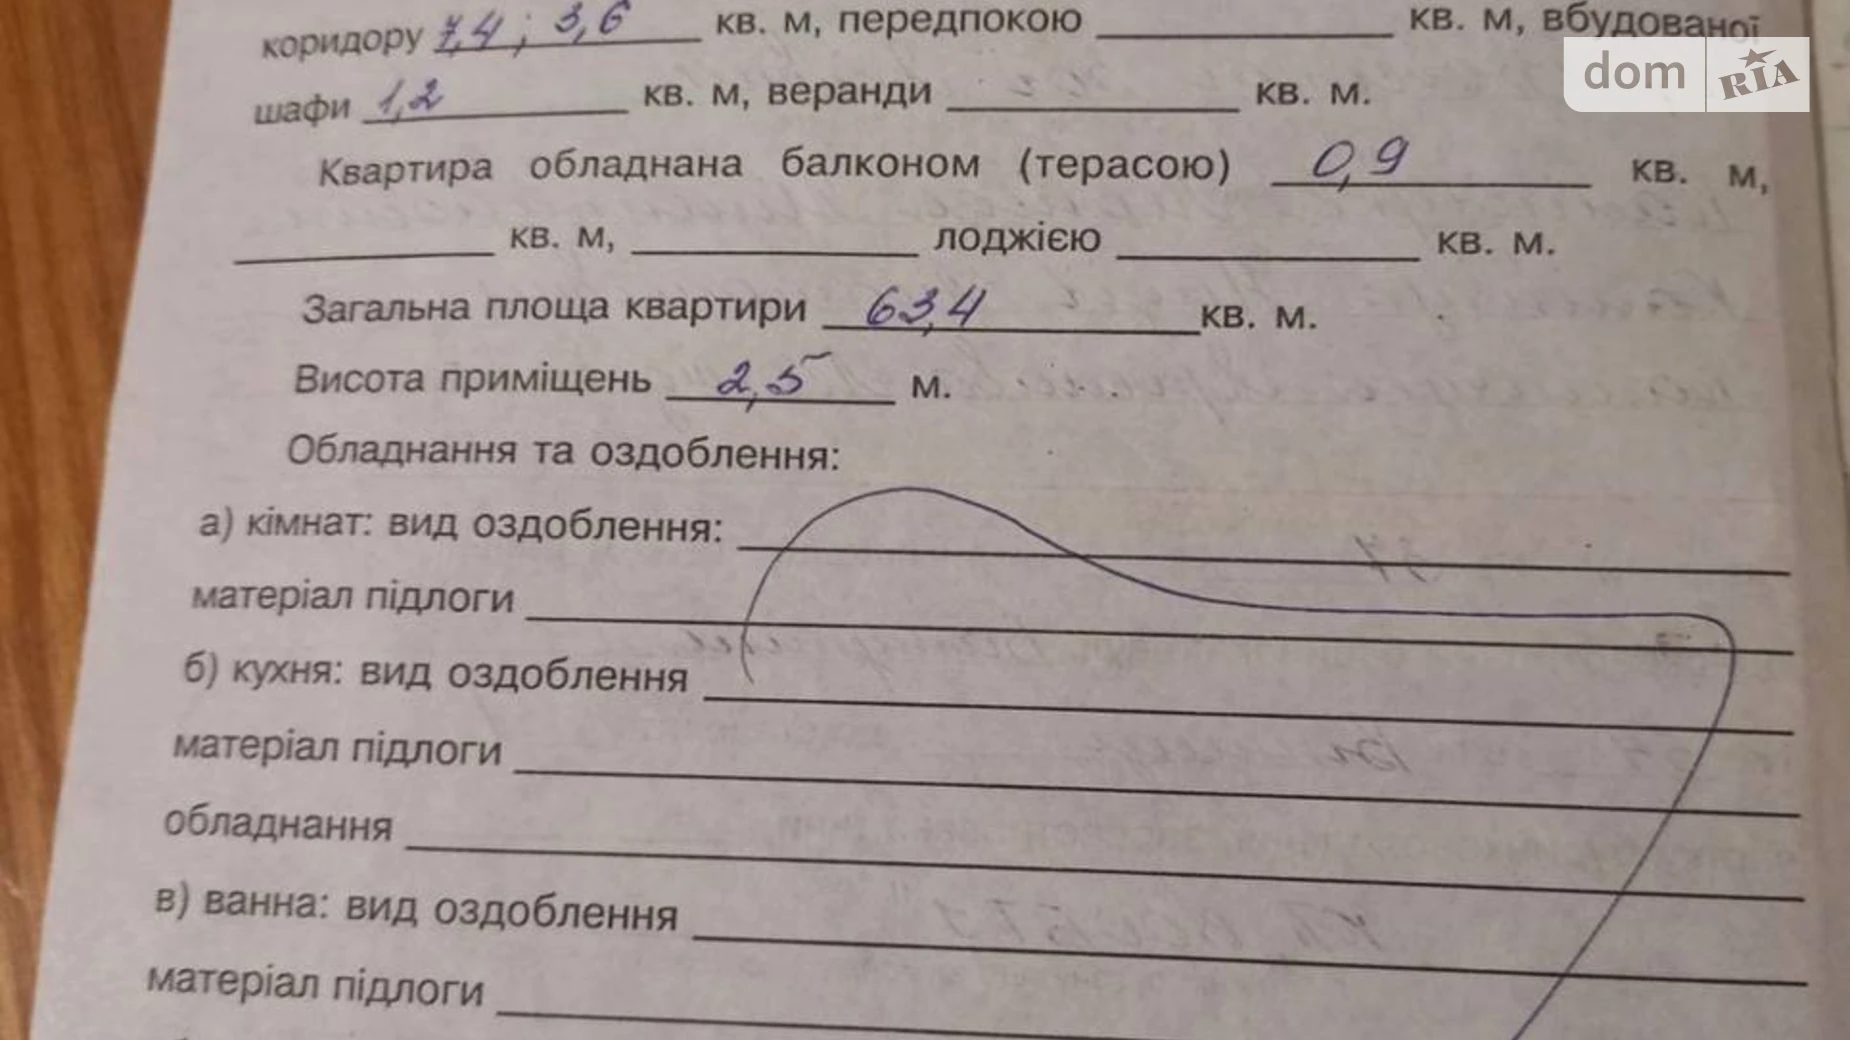 коридору 7,4 ; 3,6 кв. м, передпокою ____ кв. м, вбудованої
dom RIA
шафи 1,2 кв. м, веранди ____ кв. м.
Квартира обладнана балконом (терасою) 0,9 кв. м,
____ кв. м, ____ лоджією ____ кв. м.
Загальна площа квартири 63,4 кв. м.
Висота приміщень 2,5 м.
Обладнання та оздоблення:
а) кімнат: вид оздоблення: ____
матеріал підлоги ____
б) кухня: вид оздоблення ____
матеріал підлоги ____
обладнання ____
в) ванна: вид оздоблення ____
матеріал підлоги ____